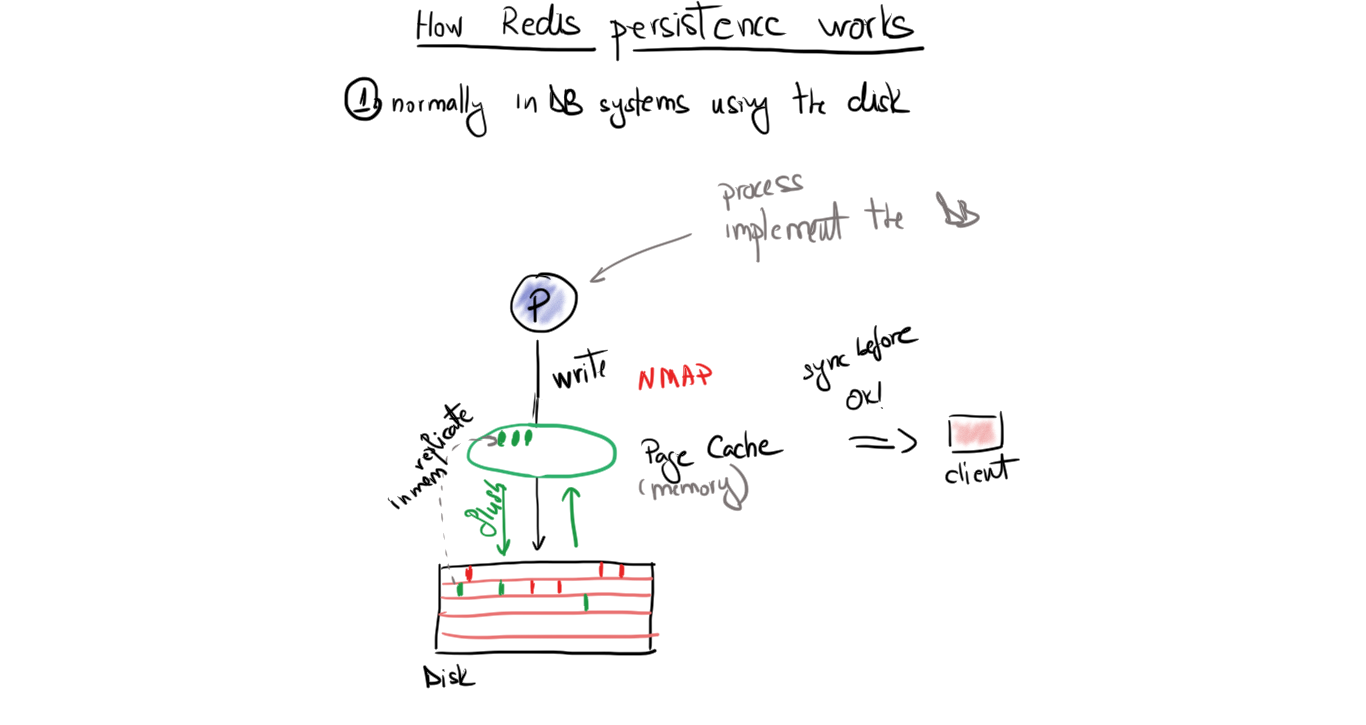 How Redis persistence works
① normally in DB systems using the disk
process
implement the DB
P
write
NMAP
sync before
OK!
replicate
in mem
Page Cache
(memory)
client
flush
Disk